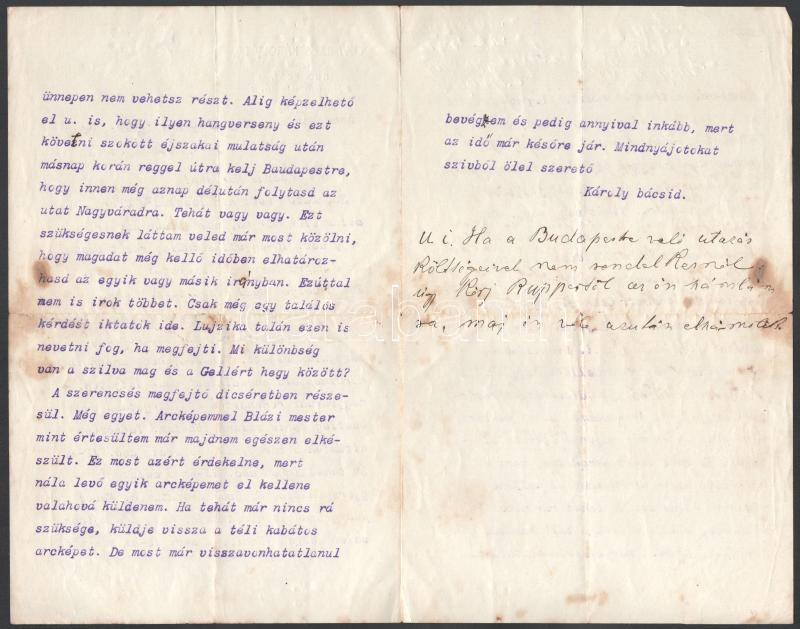 ünnepen nem vehetsz részt. Alig képzelhető
el u. is, hogy ilyen hangverseny és ezt
követni szokott éjszakai mulatság után
másnap korán reggel útra kelj Baudapestre,
hogy innen még aznap délután folytasd az
utat Nagyváradra. Tehát vagy vagy. Ezt
szükségesnek láttam veled már most közölni,
hogy magadat még kellő időben elhatároz-
hasd az egyik vagy másik irányban. Ezúttal
nem is irok többet. Csak még egy találós
kérdést iktatok ide. Lujzika talán ezen is
nevetni fog, ha megfejti. Mi különbség
van a szilva mag és a Gellért hegy között?
A szerencsés megfejtő dicséretben része-
sül. Még egyet. Arcképemmel Blázi mester
mint értesültem már majdnem egészen elké-
szült. Ez most azért érdekelne, mert
nála levő egyik arcképemet el kellene
valahová küldenem. Ha tehát már nincs rá
szüksége, küldje vissza a téli kabátos
arcképet. De most már visszavonhatatlanul
bevégzem és pedig annyival inkább, mert
az idő már későre jár. Mindnyájotokat
szivből ölel szerető
Károly bácsid.
U i. Ha a Budapestre való utazás
költségeivel nem rendelkeznél,
úgy kérj Ruppertől az én számlám
ra, maj in azután elszámolok